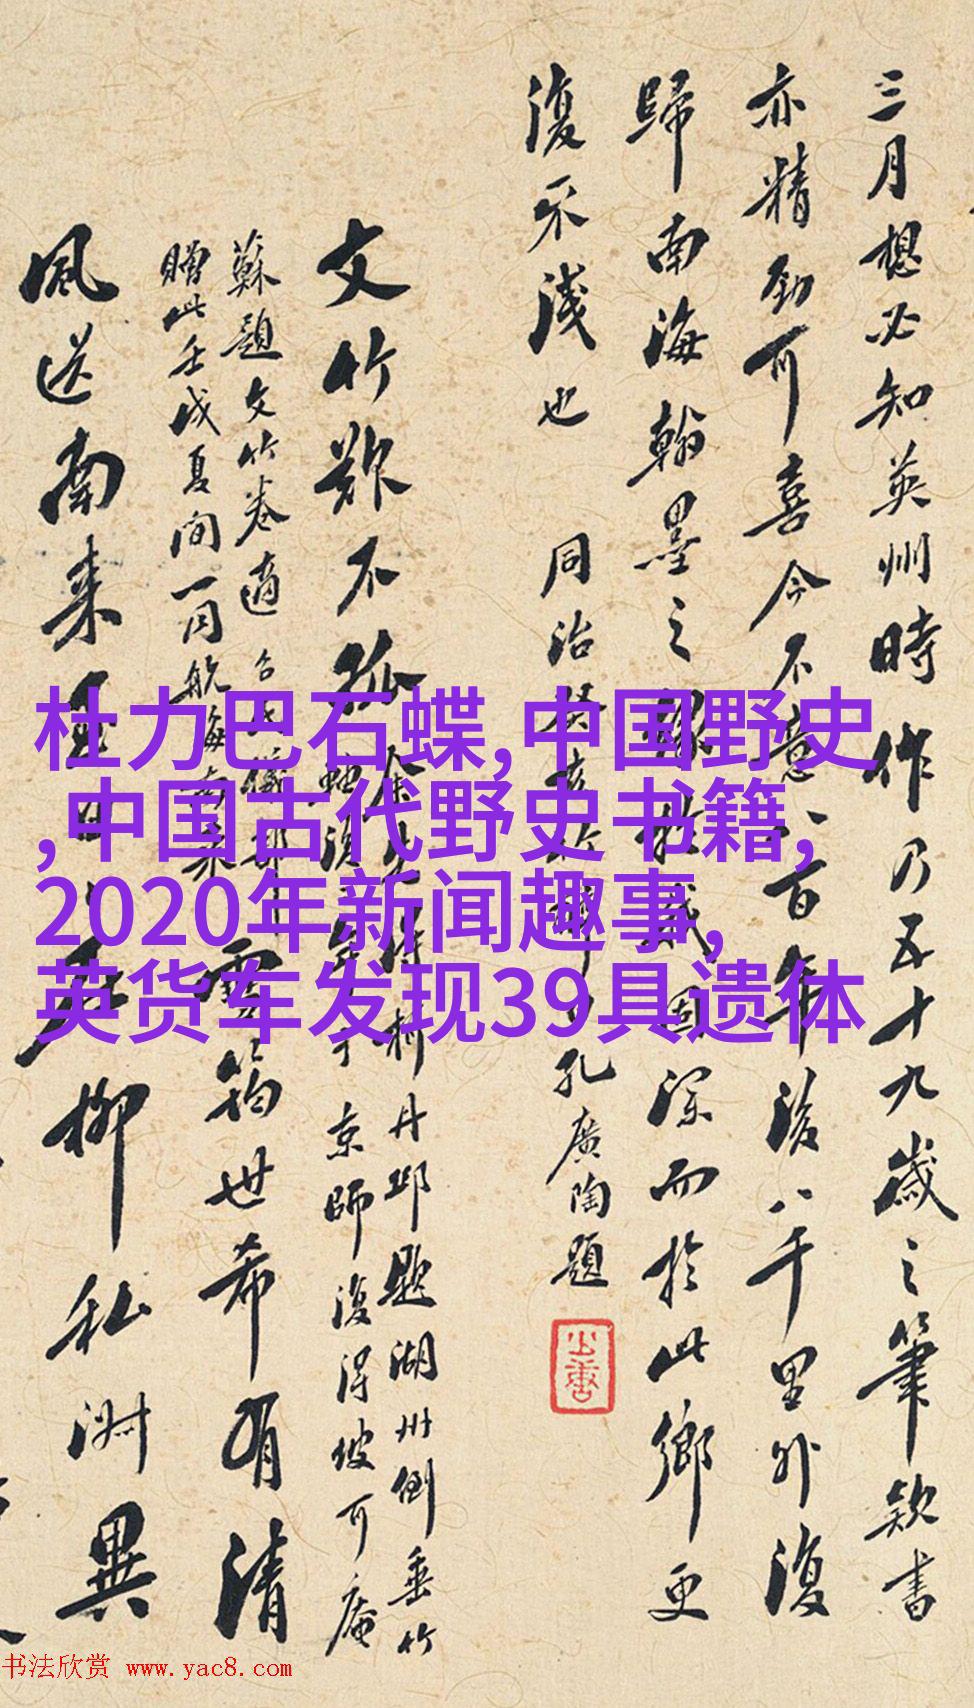 三月想必知英州時作乃五十九歲之筆款書
亦精勁可喜今不意八百年後八千里外復
歸南海翰墨之緣
固深而於此鄉更
復不淺也 同治
孔廣陶題
柯丹邱題湖州倒垂竹
京師復得坡可庵
文竹欺不孤
雪筠世希有清
蘇題文竹卷適
贈此壬戌夏间一同航海南來
風送南來
柳私淑異
杜力巴石蝶,中国野史
,中国古代野史书籍,
2020年新闻趣事,
英货车发现39具遗体
书法欣赏 www.yac8.com